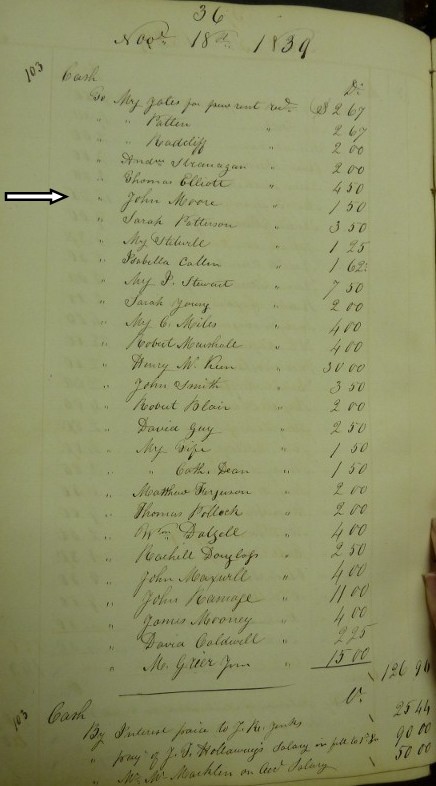 36
Novr 18th 1839
103 Cash Dr
To Mrs Yates for pew rent recd $2 67
" " Patten " 2 67
" " Radcliff " 2 00
" Andrew " 2 00
" Thomas Elliott " 4 50
" John Moore " 1 50
" Sarah Patterson " 3 50
" Mrs Stilwell " 1 25
" Isabella Cullen " 1 62
" Mrs P. Stewart " 7 50
" Sarah Young " 2 00
" Mrs C. Miles " 4 00
" Robert Marshall " 4 00
" Henry M. Keen " 30 00
" John Smith " 3 50
" Robert Blair " 2 00
" David Guy " 2 50
" Mrs Fife " 1 50
" " Cath. Dean " 1 50
" Matthew Ferguson " 2 00
" Thomas Pollock " 2 00
" Wm Dalzell " 4 00
" Rachell Douglass " 2 50
" John Maxwell " 4 00
" John Ramage " 11 00
" James Mooney " 4 00
" David Caldwell " 2 25
" M. Greer Jun " 15 00
126 96
Cr
103 Cash
By Interest paid to J. R. Jenks 25 44
" paymt of J. T. Hollaway's Salary in full to 90 00
" Mr W Macklin on acct Salary 50 00